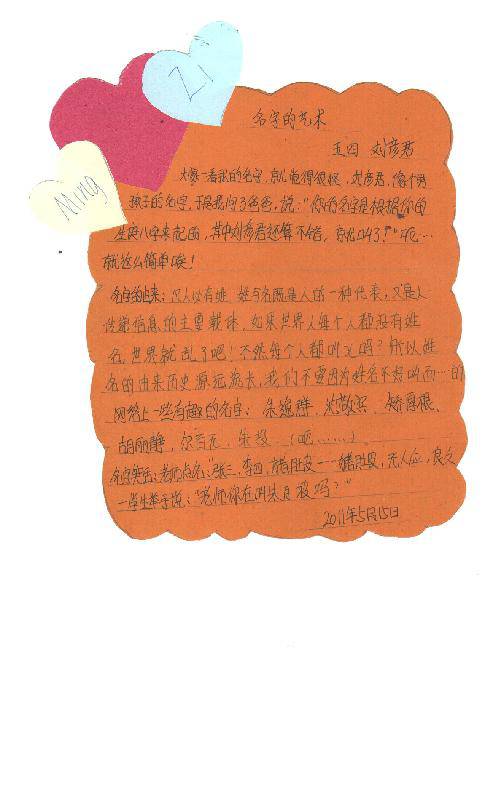 Zi
Ming
名字的艺术
五四 刘彦君
大家一看我的名字,就觉得很怪,刘彦君,像个男
孩子的名字,于是我问了爸爸,说:"你的名字是根据你的
生辰八字来起的,其中刘彦君还算不错,就叫了!"呃…
就这么简单唉!
名字的由来:汉人以有姓,姓与名既是人的一种代表,又是人
传递信息的主要载体,如果世界人每个人都没有姓
名,世界就乱了吧!不然每个人都叫 吗?所以姓
名的由来历史源远流长,我们不要因为姓名不想叫而…的
网络上一些有趣的名字:朱逸群、 、矫厚根、
胡丽静、 、朱投(呃……)。
名字笑话:老师点名:"张三,李四,猪肚皮……猪肚皮,无人应,良久
一学生举手说:"老师你在叫朱月坡吗?"
2011年5月15日